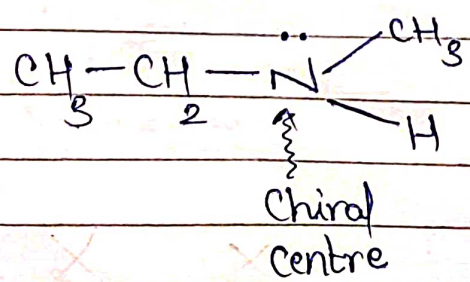 CH₃
CH₃—CH₂—N̈
H
Chiral
Centre